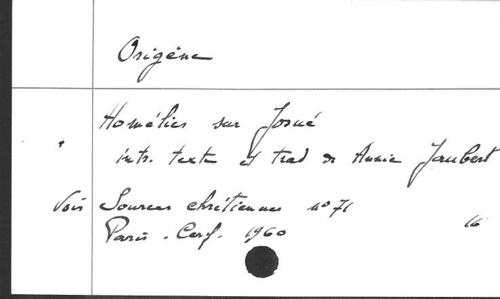 Origène
Homélies sur Josué
+ intr. texte et trad de Annie Jaubert
Voir Sources chrétiennes n° 71
Paris. Cerf. 1960 16